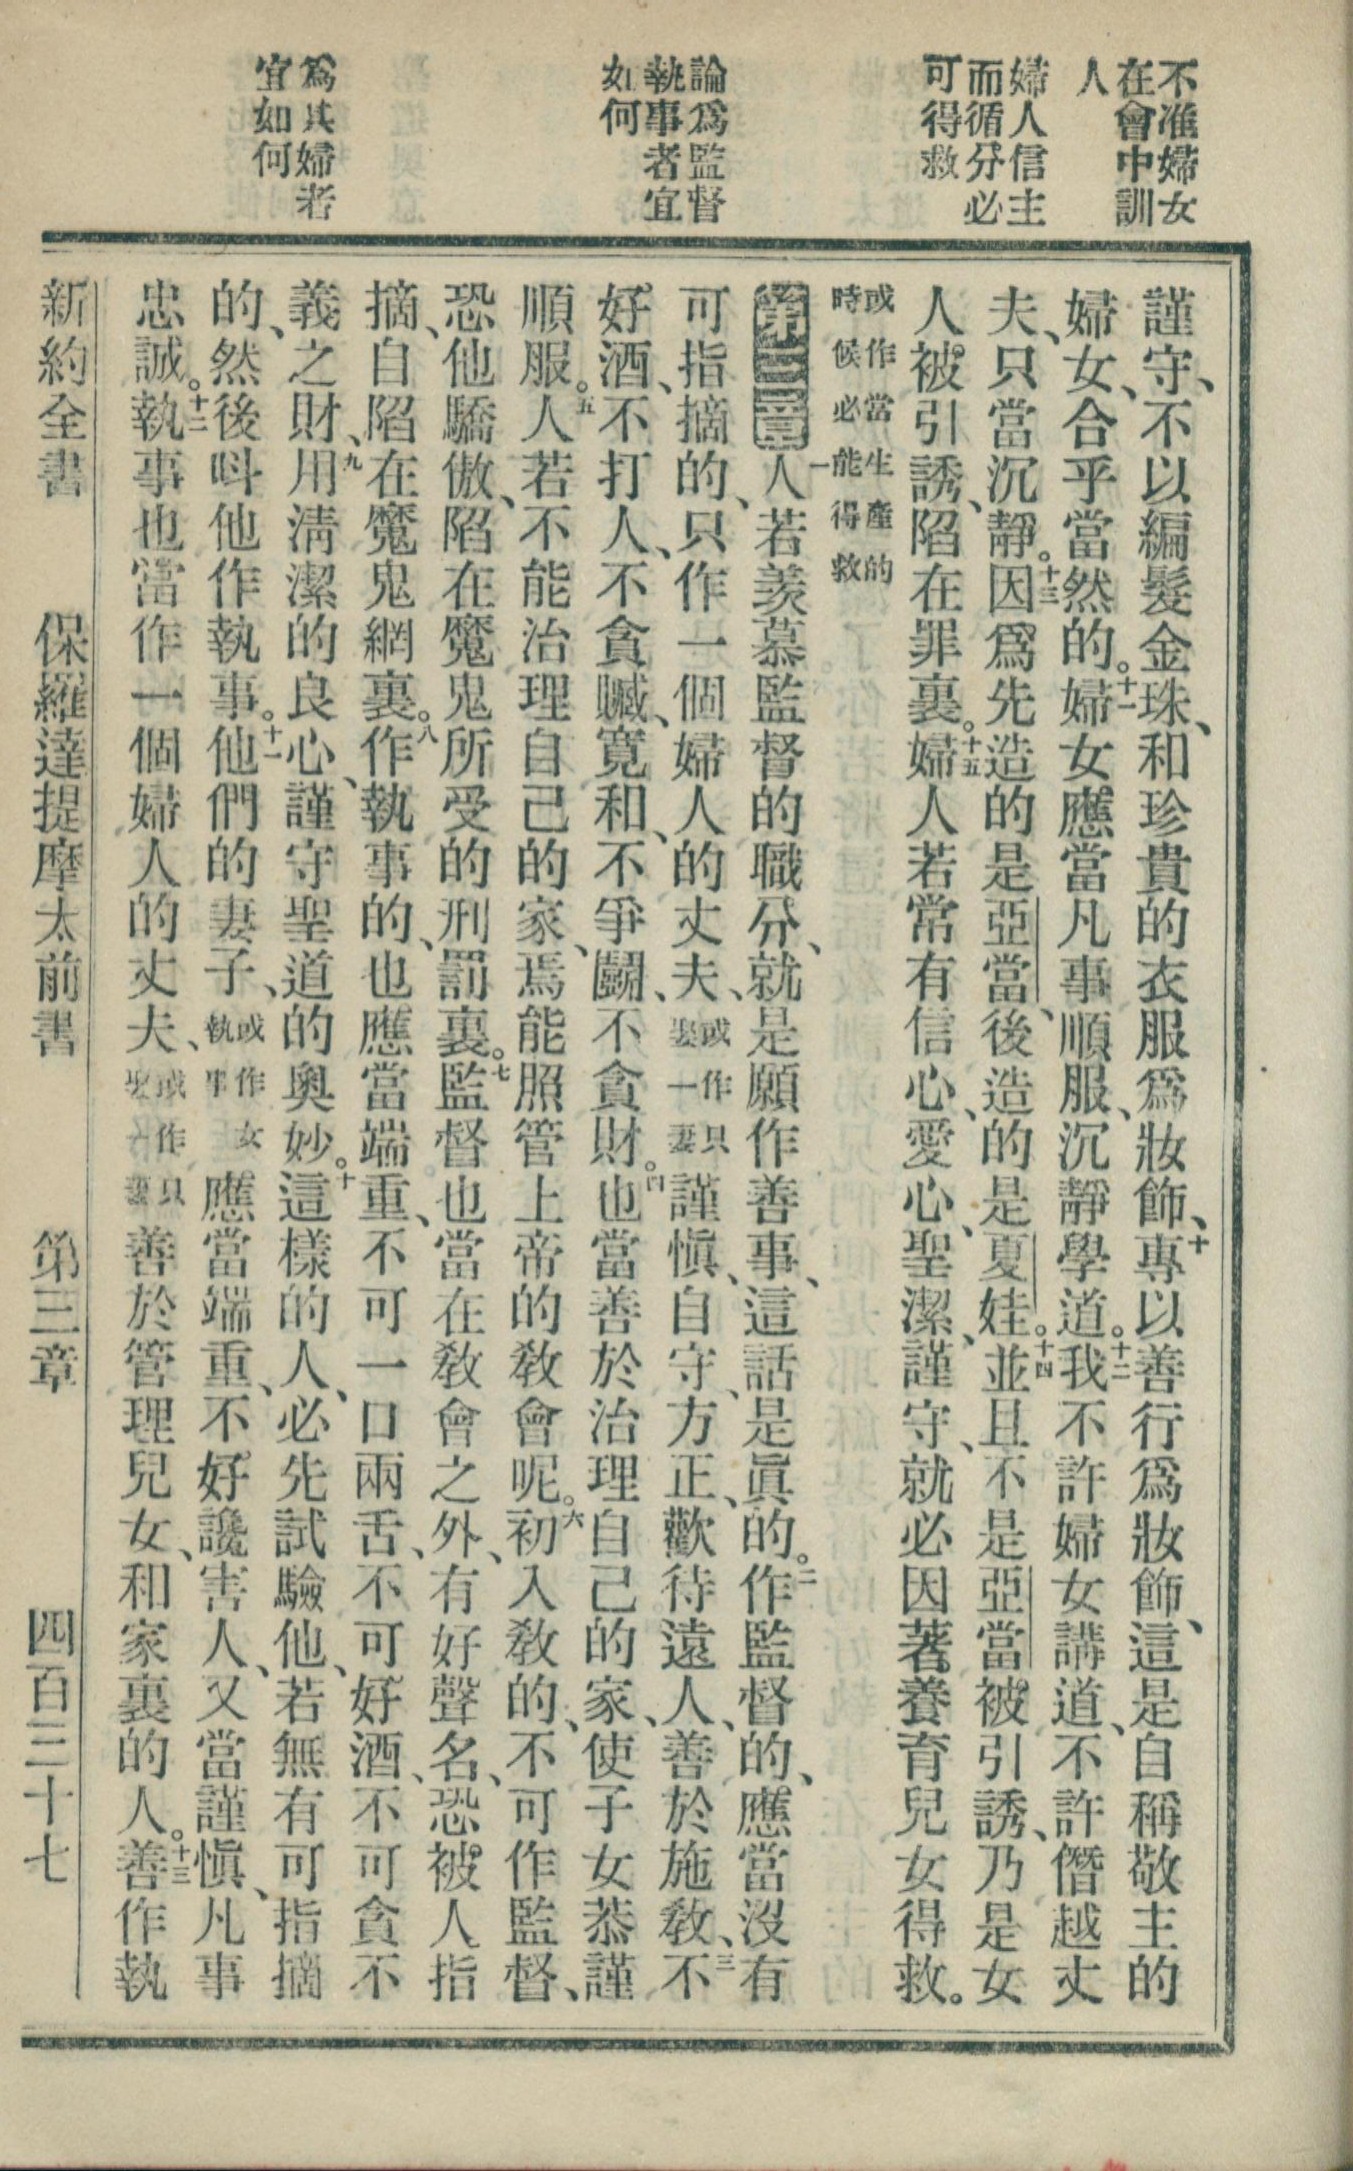 不准婦女
在會中訓
人
婦人信主
而循分必
可得救
論爲監督
執事者宜
如何
爲其婦者
宜如何
謹守、不以編髮金珠、和珍貴的衣服爲妝飾、十專以善行爲妝飾、這是自稱敬主的
婦女、合乎當然的。十一婦女應當凡事順服、沉靜學道。十二我不許婦女講道、不許僭越丈
夫、只當沉靜。十三因爲先造的是亞當、後造的是夏娃。十四並且不是亞當被引誘、乃是女
人被引誘、陷在罪裏。十五婦人若常有信心、愛心、聖潔、謹守、就必因著養育兒女得救。
或作當生產的
時候必能得救
第三章一人若羨慕監督的職分、就是願作善事、這話是眞的。二作監督的、應當沒有
可指摘的、只作一個婦人的丈夫、或作只娶一妻謹愼、自守、方正、歡待遠人、善於施敎、三不
好酒、不打人、不貪贓、寬和、不爭鬭、不貪財。四也當善於治理自己的家、使子女恭謹
順服。五人若不能治理自己的家、焉能照管上帝的敎會呢。六初入敎的、不可作監督、
恐他驕傲、陷在魔鬼所受的刑罰裏。七監督也當在敎會之外、有好聲名、恐被人指
摘、自陷在魔鬼網裏。八作執事的、也應當端重、不可一口兩舌、不可好酒、不可貪不
義之財、九用淸潔的良心、謹守聖道的奧妙。十這樣的人、必先試驗他、若無有可指摘
的、然後呌他作執事。十一他們的妻子、或作女執事應當端重、不好讒害人、又當謹愼、凡事
忠誠。十二執事也當作一個婦人的丈夫、或作只娶一妻善於管理兒女、和家裏的人。十三善作執
新約全書 保羅達提摩太前書 第三章 四百三十七